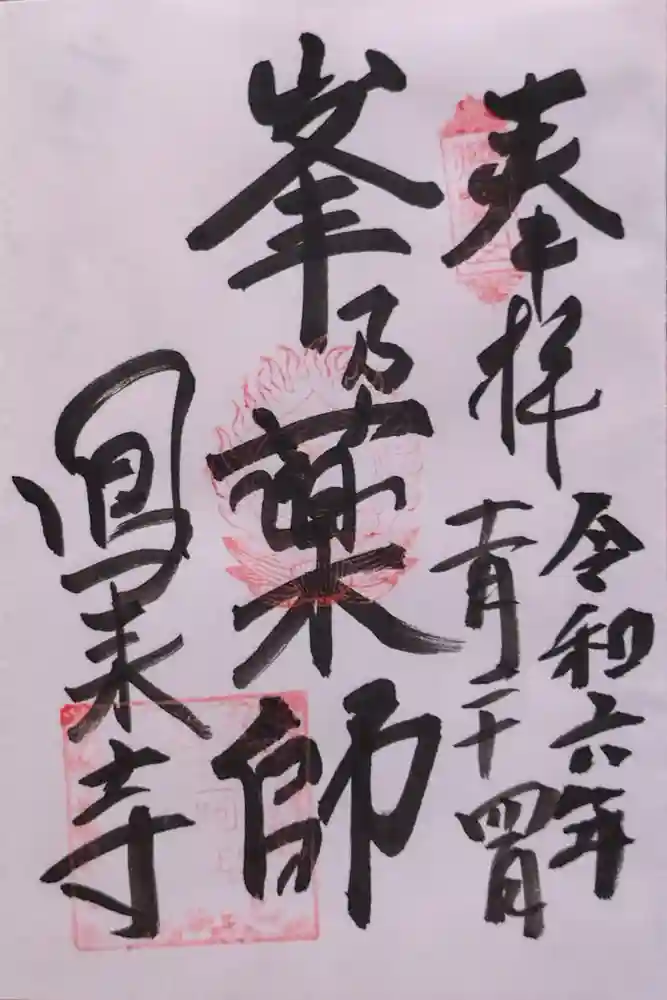 奉拝
令和六年
十一月二十四日
峯乃薬師
鳳来寺